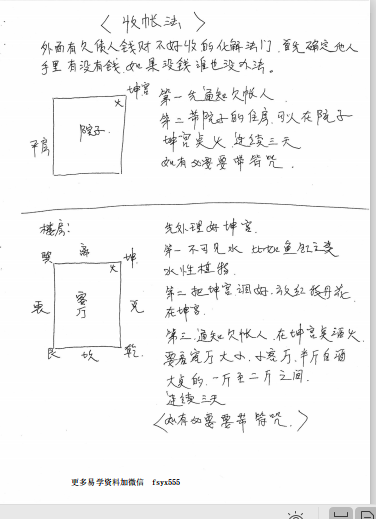 <收帐法>
外面有欠债人钱财不好收的化解法门.首先确定他人
手里有没有钱.如果没钱谁也没办法。
坤宫
火
院子
平房
第一步通知欠帐人.
第二带院子的住房.可以在院子
坤宫点火 连续三天
如有必要要带符咒.
楼房:
巽 离 坤
火
震
客厅
兑
艮 坎 乾.
先处理好坤宫.
第一不可见水 比如鱼缸之类
水性植物.
第二把坤宫调好.放红牡丹花
在坤宫.
第三.通知欠帐人.在坤宫点酒火
要看客厅大小.小客厅.半斤白酒
大点的.一斤至二斤之间.
连续三天
<如有必要要带符咒.>
更多易学资料加微信 fsyx555